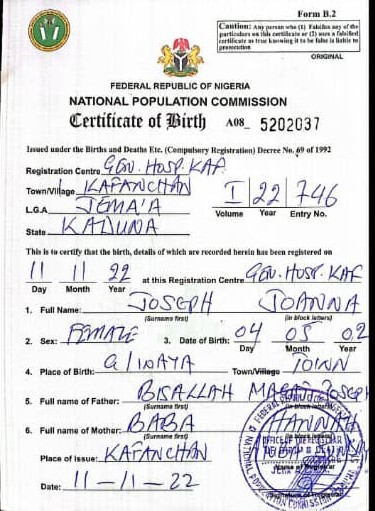 Form B.2
Caution: Any person who (1) Falsifies any of the
particulars on this certificate or (2) uses a falsified
certificate as true knowing it to be false is liable to
prosecution
ORIGINAL
FEDERAL REPUBLIC OF NIGERIA
NATIONAL POPULATION COMMISSION
Certificate of Birth A08 5202037
Issued under the Births and Deaths Etc. (Compulsory Registration) Decree No. 69 of 1992
Registration Centre GEN. HOSP. KAF
Town/Village KAFANCHAN
L.G.A JEMA'A
State KADUNA
I 22 746
Volume Year Entry No.
This is to certify that the birth, details of which are recorded herein has been registered on
11 11 22 at this Registration Centre GEN. HOSP. KAF
Day Month Year
1. Full Name: JOSEPH JOANNA
(Surname first) (in block letters)
2. Sex: FEMALE 3. Date of Birth: 04 05 02
Day Month Year
4. Place of Birth: Town/Village TOWN
5. Full name of Father: BISALLAH JOSEPH
(Surname first) (in block letters)
6. Full name of Mother: BABA HANNAH
(Surname first)
Place of issue: KAFANCHAN
Name of Registrar
Date: 11-11-22
Signature of Registrar